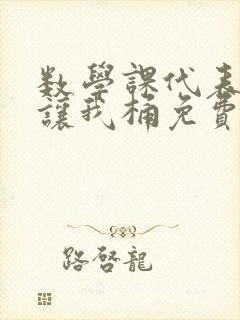 數學課代表
讓我桶免費
路啓龍